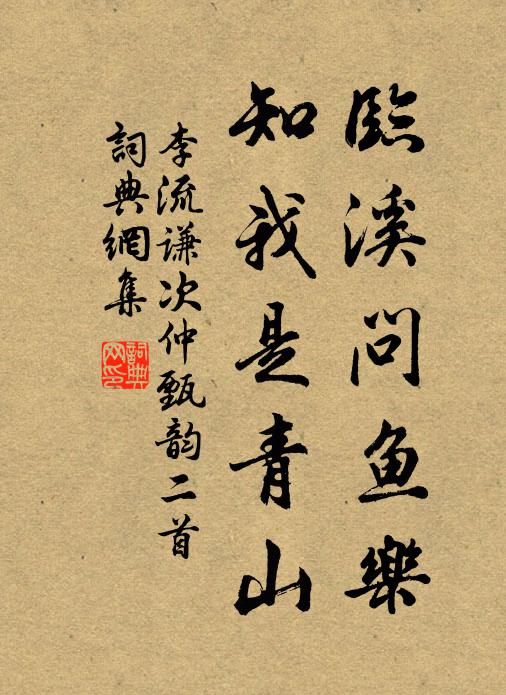 臨溪问鱼樂
知我是青山
李流谦次仲甄韵二首
詞典網集
詞典
网印